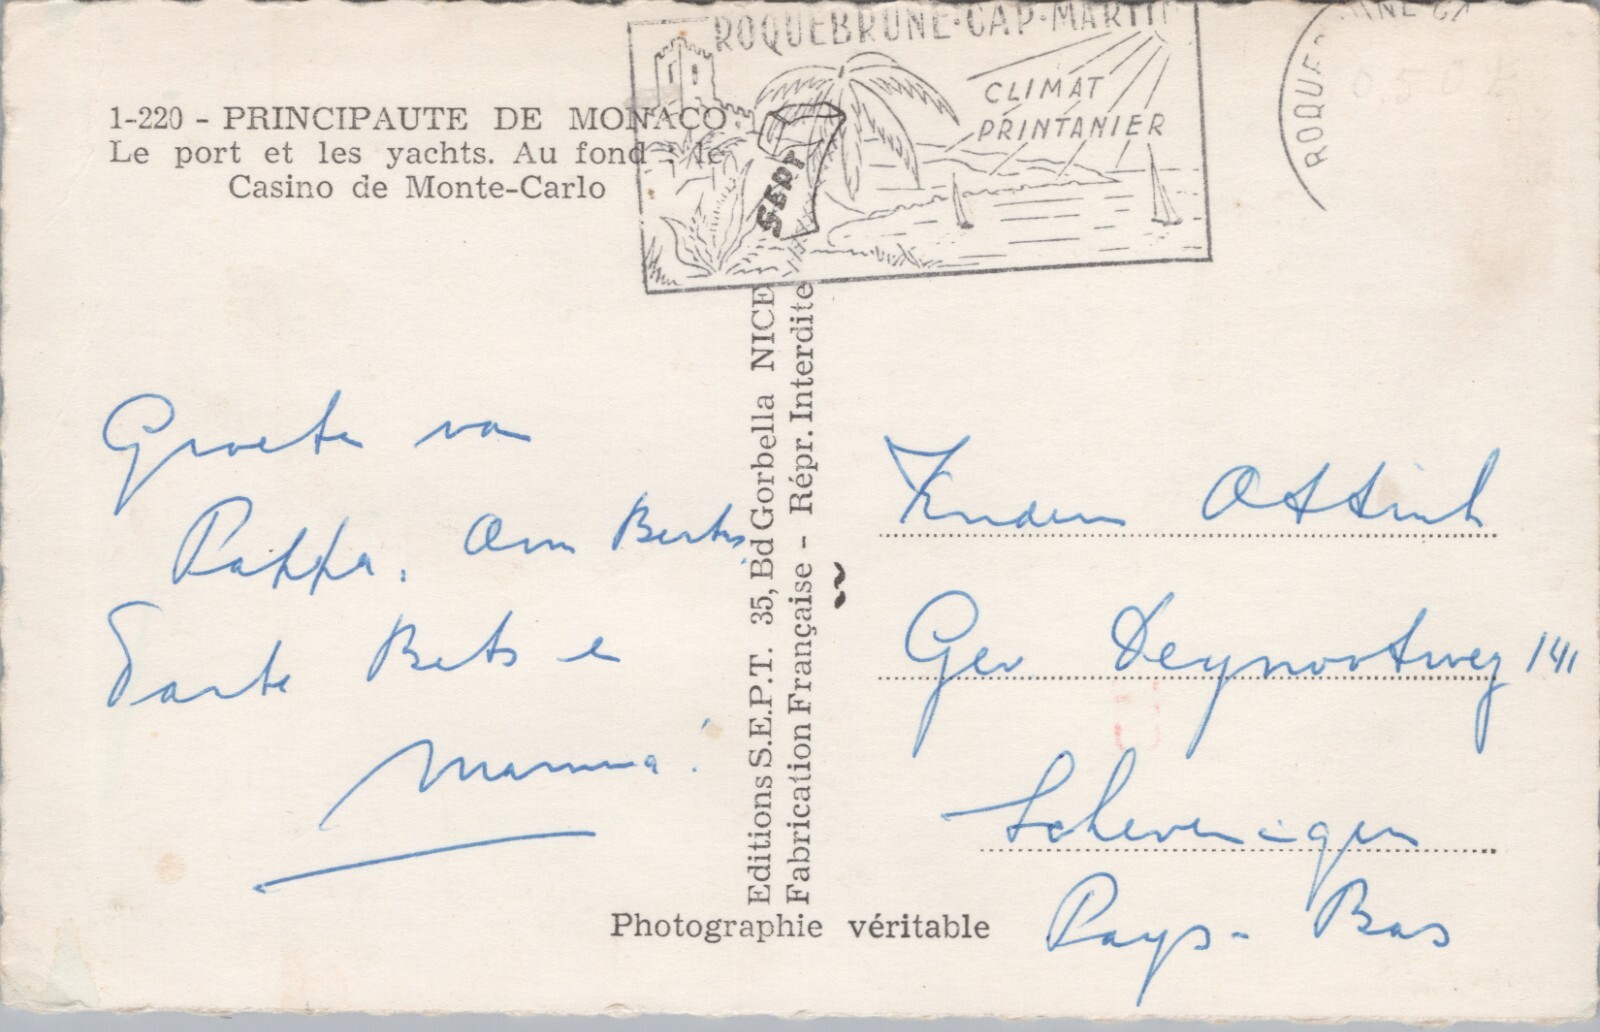 ROQUEBRUNE-CAP-MARTIN
CLIMAT
PRINTANIER
ROQUE
1-220 - PRINCIPAUTE DE MONACO
Le port et les yachts. Au fond : le
Casino de Monte-Carlo
SEPT
Editions S.E.P.T. 35, Bd Gorbella NICE
Fabrication Française - Répr. Interdite
Groeten van
Pappa, Oom Bertus,
Tante Bets en
Mamma!
Ottink
Gev Deynootweg 141
Scheveningen
Pays-Bas
Photographie véritable